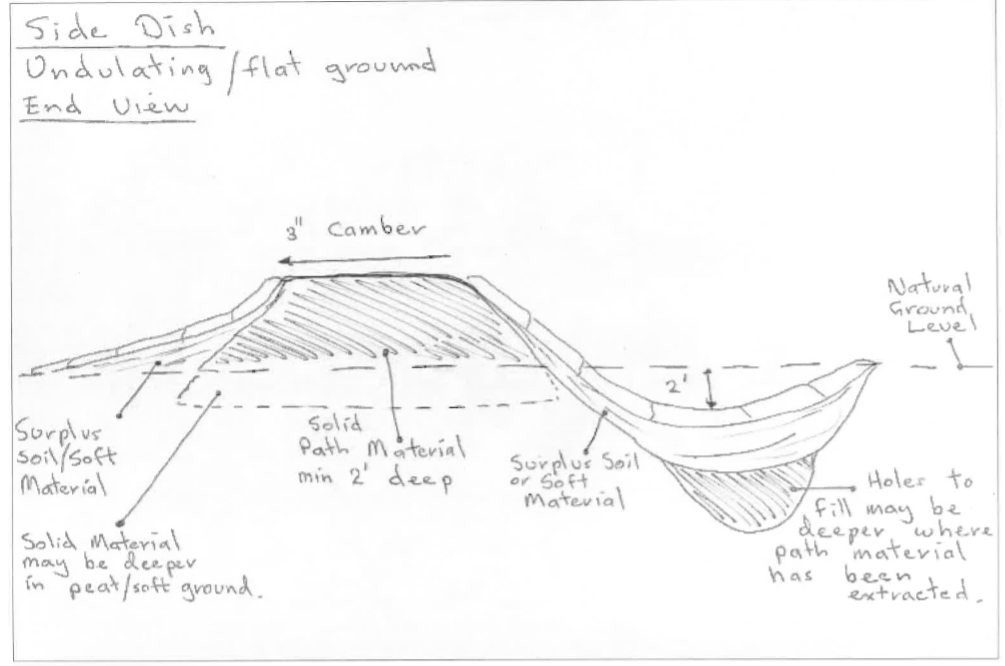 Side Dish
Undulating/flat ground
End View
3" Camber
Natural
Ground
Level
2'
Surplus
Soil/Soft
Material
Solid
Path Material
min 2' deep
Surplus Soil
or Soft
Material
Holes to
fill may be
deeper where
path material
has been
extracted.
Solid Material
may be deeper
in peat/soft ground.